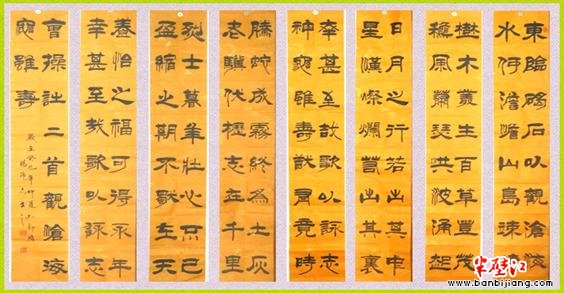 東臨碣石以觀滄海
水何澹澹山島竦峙
樹木叢生百草豐茂
秋風蕭瑟洪波涌起
日月之行若出其中
星漢燦爛若出其裏
幸甚至哉歌以詠志
神龜雖壽猶有竟時
騰蛇成霧終為土灰
老驥伏櫪志在千里
烈士暮年壯心不已
盈縮之期不獨在天
養怡之福可得永年
幸甚至哉歌以詠志
曹操詩二首觀滄海
龜雖壽
半壁江
www.banbijiang.com